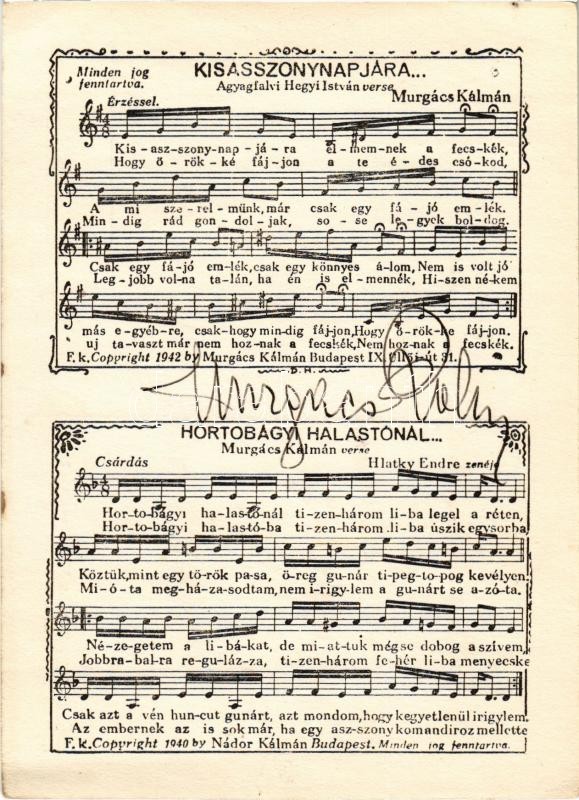 Minden jog
fenntartva.
KISASSZONYNAPJÁRA...
Agyagfalvi Hegyi István verse
Murgács Kálmán
Érzéssel.
Kis-asz-szony-nap-já-ra el-mem-nek a fecs-kék,
Hogy ö-rök-ké fáj-jon a te é-des csó-kod,
A mi sze-rel-münk, már csak egy fá-jó em-lék.
Min-dig rád gon-dol-jak, so-se le-gyek bol-dog.
Csak egy fá-jó em-lék, csak egy könnyes á-lom, Nem is volt jó
Leg-jobb vol-na ta-lán, ha én is el-mennék, Hi-szen né-kem
más e-gyéb-re, csak-hogy min-dig fáj-jon, Hogy ö-rök-ke fáj-jon.
uj ta-vaszt már nem hoz-nak a fecskék, Nem hoz-nak a fecskék.
F. k. Copyright 1942 by Murgács Kálmán Budapest IX. Üllői-út 81.
D. H.
Murgács Kálmán
HORTOBÁGYI HALASTÓNÁL...
Murgács Kálmán verse
Csárdás
Hlatky Endre zenéje
Hor-to-bágyi ha-las-tó-nál ti-zen-három li-ba legel a réten,
Hor-to-bágyi ha-las-tó-ba ti-zen-három li-ba úszik egysorba,
Köztük, mint egy tö-rök pa-sa, ö-reg gu-nár ti-peg-to-pog kevélyen.
Mi-ó-ta meg-há-za-sodtam, nem i-rigy-lem a gu-nárt se a-zó-ta.
Né-ze-getem a li-bá-kat, de mi-at-tuk mégse dobog a szívem,
Jobbra-bal-ra re-gu-láz-za, ti-zen-három fe-hér li-ba menyecske
Csak azt a vén hun-cut gunárt, azt mondom, hogy kegyetlenül irigylem.
Az embernek az is sok már, ha egy asz-szony komandiroz mellette
F. k. Copyright 1940 by Nádor Kálmán Budapest. Minden jog fenntartva.